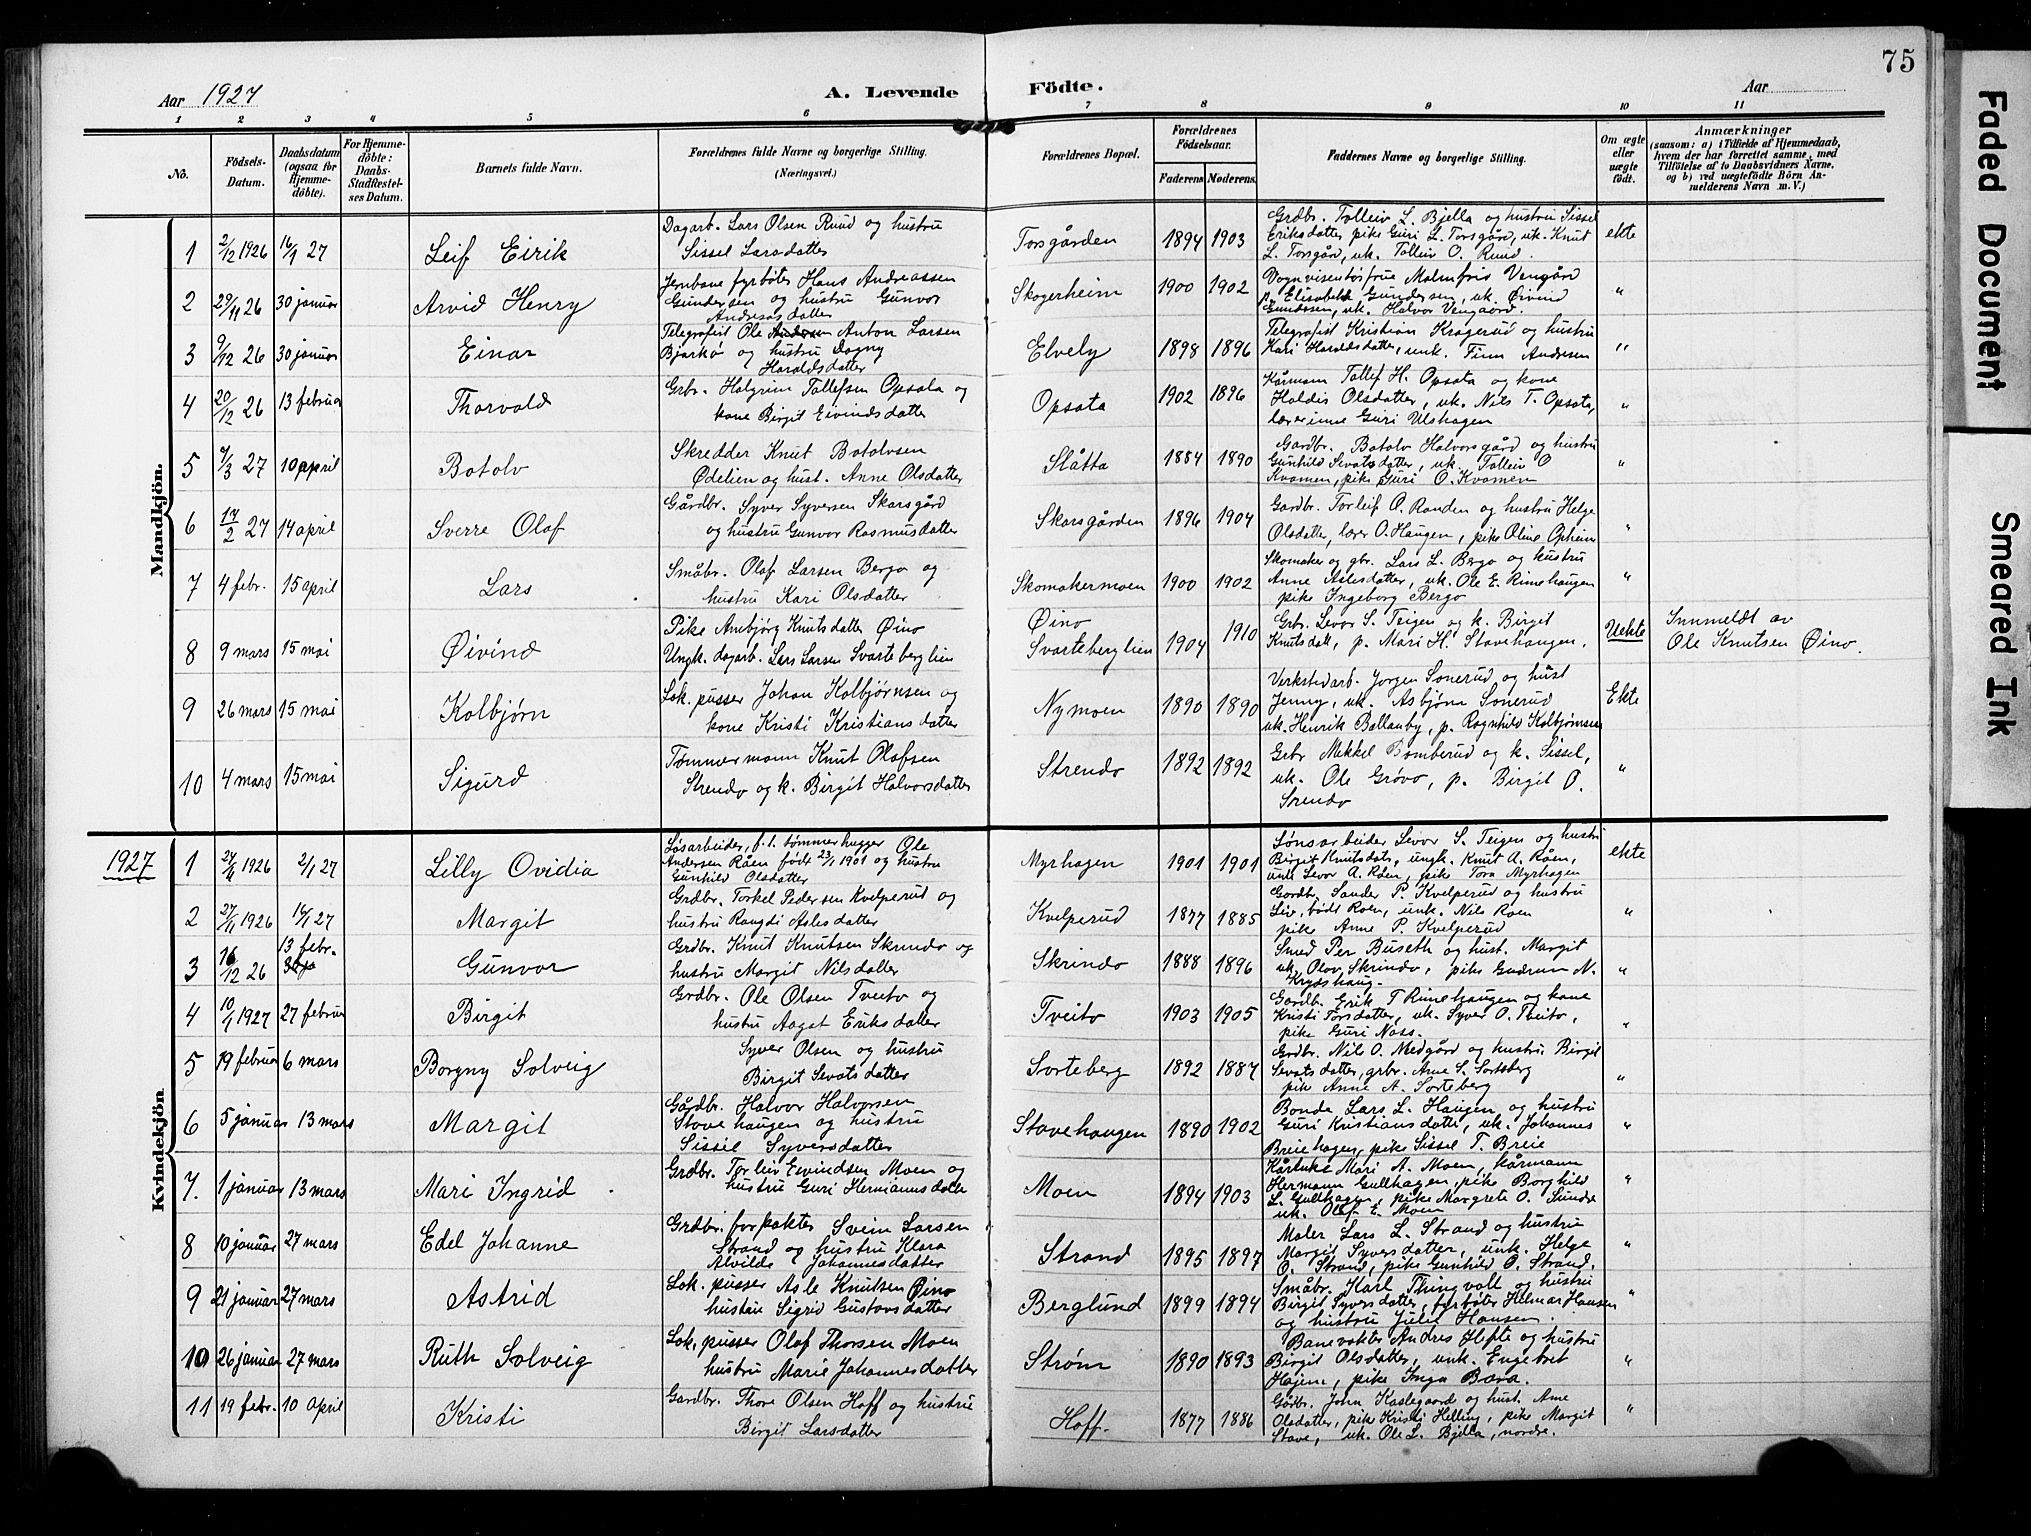 75
Aar 1927
A. Levende Födte.
Aar
1 2 3 4 5 6 7 8 9 10 11
No.
Födsels-Datum.
Daabsdatum (ogsaa for Hjemmedöbte).
For Hjemmedöbte: Daabs-Stadfæstelses Datum.
Barnets fulde Navn.
Forældrenes fulde Navne og borgerlige Stilling. (Næringsvei.)
Forældrenes Bopæl.
Forældrenes Födselsaar.
Faderens. Moderens.
Faddernes Navne og borgerlige Stilling.
Om ægte eller uægte födt.
Anmærkninger
(saasom: a) i Tilfælde af Hjemmedaab, hvem der har forrettet samme, med Tilföielse af to Daabsvidners Navne, og b) ved uægtefödte Börn Anmelderens Navn m. V.)
Mandkjön.
1 2/12 1926 16/1 27 Leif Eirik
Dagarb. Lars Olsen Ruud og hustru
Sissel Larsdatter
Torsgården 1894 1903
Grdbr. Tolleiv L. Bjella og hustru Sissel
Eriksdatter pike Guri L. Torsgård, uk. Knut
L. Torsgård, uk. Tolleiv O. Ruud.
ekte
2 29/11 26 30 januar Arvid Henry
Jernbane fyrbøter Hans Andreassen
Gundersen og hustru Gunvor
Andreasdatter
Skogerheim 1900 1902
Vognvisentørfrue Malmfrid Vengård
p. Elisabeth Gundersen, uk. Øivind
Gundersen, uk. Halvor Vengaard.
"
3 9/12 26 30 januar Einar
Telegrafist Ole Anton Larsen
Bjarkø og hustru Dagny
Haraldsdatter
Elvely 1898 1896
Telegrafist Kristian Kragerud og hustru
Kari Haraldsdatter, unk. Finn Andresen
"
4 20/12 26 13 februar Thorvald
Grbr. Halgrim Tollefsen Opsata og
kone Birgit Eivindsdatter
Opsata 1902 1896
Kårmann Tollef H. Opsata og kone
Haldis Olsdatter, uk. Nils T. Opsata,
lærerinne Guri Ulshagen
"
5 9/3 27 10 april Botolv
Skredder Knut Botolvsen
Ødelien og hust. Anne Olsdatter
Slåtta 1884 1890
Gardbr. Botolv Halvorsgård og hustru
Gunhild Sevatsdatter, uk. Tolleiv O
Kvamen, pike Guri O. Kvamen
"
6 17/2 27 14 april Sverre Olaf
Gårdbr. Syver Syversen Skarsgård
og hustru Gunvor Rasmusdatter
Skarsgården 1896 1904
Gardbr. Torleif O. Randen og hustru Helge
Olsdatter, lærer O. Haugen, pike Oline Opheim
"
7 4 febr. 15 april Lars
Småbr. Olaf Larsen Bergo og
hustru Kari Olsdatter
Skomakermoen 1900 1902
Skomaker og gbr. Lars L. Bergo og hustru
Anne Aslesdatter, uk. Ole E. Rimehaugen
pike Ingeborg Bergo
"
8 9 mars 15 mai Øivind
Pike Ambjørg Knutsdatter Øino
Ungk. dagarb. Lars Larsen Svarteberglien
Øino
Svarteberglien 1904 1910
Grbr. Levor S. Teigen og k. Birgit
Knutsdatt, p. Mari H. Stavehaugen.
Uekte
Innmeldt av
Ole Knutsen Øino.
9 26 mars 15 mai Kolbjørn
Lok. pusser Johan Kolbjørnsen og
kone Kristi Kristiansdatter
Nymoen 1890 1890
Verkstedarb. Jørgen Sonerud og hust
Jenny, uk. Asbjørn Sonerud
uk. Henrik Ballanby, p. Ragnhild Kolbjørnsen
Ekte
10 4 mars 15 mai Sigurd
Tømmermann Knut Olafsen
Strendo og k. Birgit Halvorsdatter
Strendo 1892 1892
Grbr Mekkel Bomberud og k. Sissel,
uk. Ole Grøvo, p. Birgit O.
Srendo
"
1927
Kvindekjön
1 24/11 1926 2/1 27 Lilly Ovidia
Løsarbeider, f. t. tømmerhugger Ole
Andersen Råen født 23/1 1901 og hustru
Gunhild Olsdatter
Myrhagen 1901 1901
Lønsarbeider Levor S. Teigen og hustru
Birgit Knutsdatr, ungk. Knut A. Råen,
unk Levor A. Råen, pike Tora Myrhagen
ekte
2 27/11 1926 16/1 27 Margit
Grdbr. Torkel Pedersen Kvelperud og
hustru Rangdi Aslesdatter
Kvelperud 1877 1885
Gardbr. Sander P. Kvelperud og hustru
Liv, født Roen, unk. Nils Roen
pike Anne P. Kvelperud
"
3 16/12 26 13 febr. Gunvor
Grdbr. Knut Knutsen Skrindo og
hustru Margit Nilsdatter
Skrindo 1888 1896
Smed Per Buseth og hust. Margit
uk. Olov Skrindo, pike Gudrun N.
Krydshaug.
"
4 10/1 1927 27 februar Birgit
Grdbr. Ole Olsen Tveito og
hustru Aagot Eriksdatter
Tveito 1903 1905
Gardbr. Erik T Rimehaugen og kone
Kristi Torsdatter, uk. Syver O. Tveito,
pike Guri Noss.
"
5 19 februar 6 mars Borgny Solveig
Syver Olsen og hustru
Birgit Sevatsdatter
Sorteberg 1892 1887
Grdbr. Nils O. Medgård og hustru Birgit
Sevatsdatter, grbr. Arne S. Sorteberg
pik Anne A. Sorteberg
"
6 5 januar 13 mars Margit
Gårdbr. Halvor Halvorsen
Stavehaugen og hustru
Sissil Syversdatter
Stavehaugen 1890 1902
Bonde Lars L. Haugen og hustru
Guri Kristiansdatter, uk. Johannes
Breiehagen, pike Sissel T. Breie
"
7. 1 januar 13 mars Mari Ingrid
Grdbr. Torleiv Eivindsen Moen og
hustru Guri Hermannsdatter
Moen 1894 1903
Kårenke Mari A. Moen, kårmann
Hermann Gullhagen, pike Borghild
L. Gullhagen, pike Margrete O. Sundre
uk. Olaf E. Moen
"
8 10 januar 27 mars Edel Johanne
Grdbr. forpakter Svein Larsen
Strand og hustru Klara
Alvilde Johannesdatter
Strand 1895 1897
Maler Lars L. Strand og hustru
Margit Syversdatter, unk. Helge
O. Strand, pike Gunhild O. Strand.
"
9 21 januar 27 mars Astrid
Lok. pusser Asle Knutsen Øino
hustru Sigrid Gustavsdatter
Berglund 1899 1894
Småbr. Karl Thingvoll og hustru
Birgit Syversdatter, fyrbøter Helmar Hansen
og hustru Julie Hansen.
"
10 26 januar 27 mars Ruth Solveig
Lok. pusser Olaf Thorsen Moen
hustru Marie Johannesdatter
Strøm 1890 1893
Banevokter Andres Hefte og hustru
Birgit Olsdatter, unk. Engebret
Hajem, pike Inga Bara.
"
11 19 febr. 10 april Kristi
Gardbr. Thore Olsen Hoff og hustru
Birgit Larsdatter
Hoff. 1877 1886
Gårdbr. John Kaslegaard og hust. Arne
Olsdatter, pik Kristi Helling, pike Margit
Stave, uk. Ole L. Bjella, nordre.
"
Faded Document
Smeared Ink